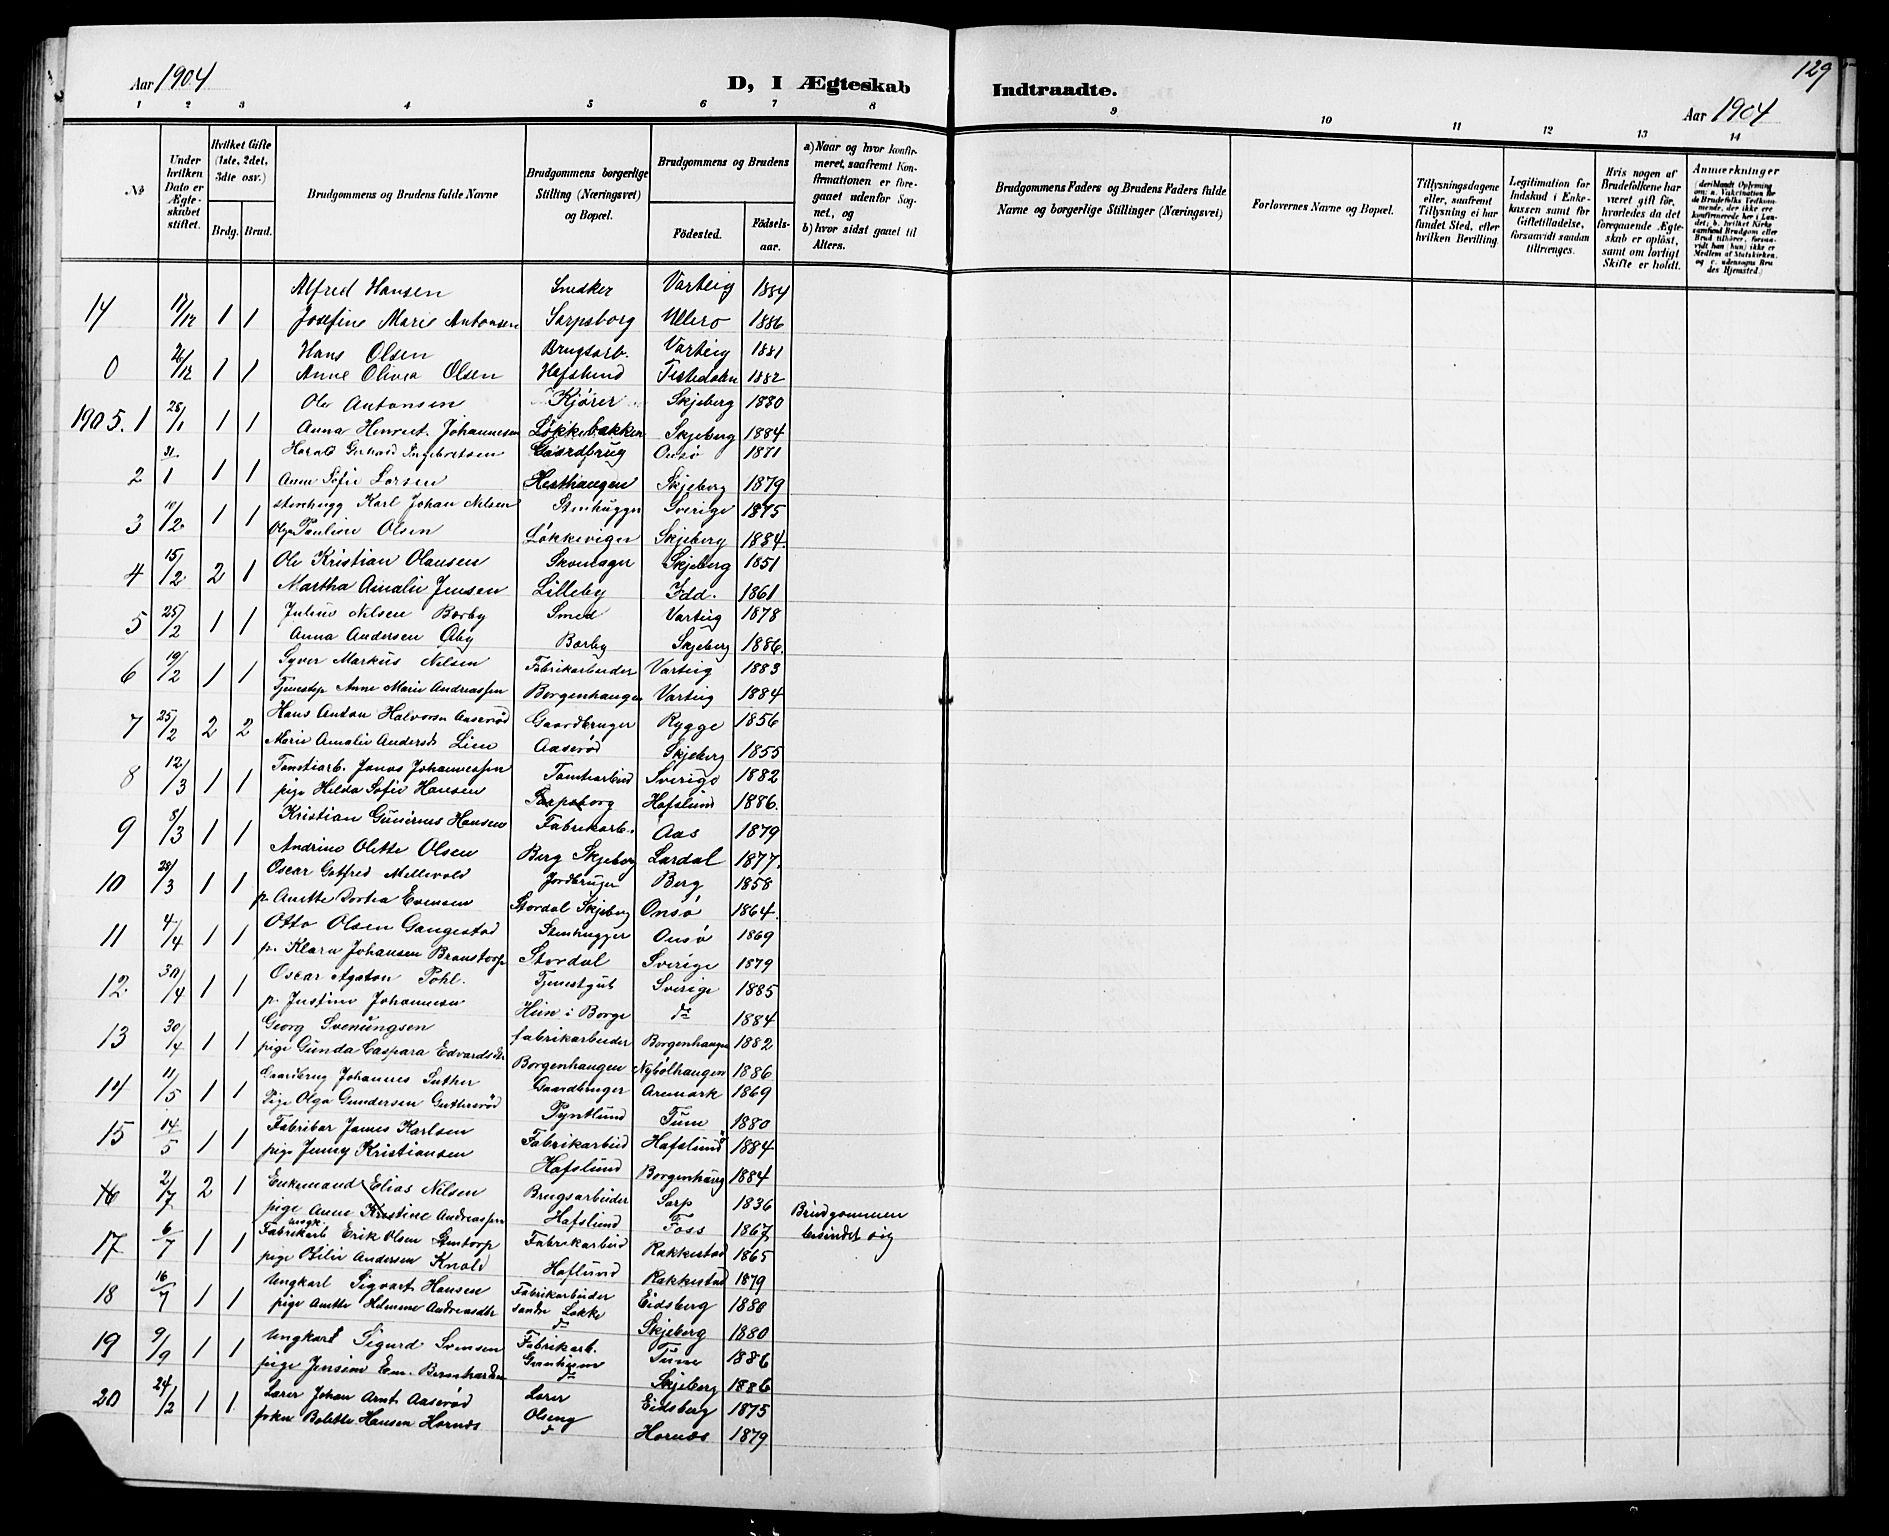 129
Aar 1904
D, I Ægteskab
Indtraadte.
Aar 1904
1 2 3 4 5 6 7 8 9 10 11 12 13 14
№
Under hvilken Dato er Ægteskabet stiftet.
Hvilket Gifte (1ste, 2det, 3die osv.)
Brdg. Brud.
Brudgommens og Brudens fulde Navne
Brudgommens borgerlige Stilling (Næringsvei) og Bopæl.
Brudgommens og Brudens
Fødested.
Fødselsaar.
a) Naar og hvor konfirmeret, saafremt Konfirmationen er foregaaet udenfor Sognet, og
b) hvor sidst gaaet til Alters.
Brudgommens Faders og Brudens Faders fulde Navne og borgerlige Stillinger (Næringsvei)
Forlovernes Navne og Bopæl.
Tillysningsdagene eller, saafremt Tillysning ei har fundet Sted, efter hvilken Bevilling.
Legitimation for Indskud i Enkekassen samt for Giftetilladelse, forsaavidt saadan tiltrænges.
Hvis nogen af Brudefolkene har været gift før, hvorledes da det foregaaende Ægteskab er opløst, samt om lovligt Skifte er holdt.
Anmærkninger
(deriblandt Oplysning om: a. Vakcination for de Brudefolks Vedkommende, der ikke ere konfirmerede her i Landet; b. hvilket Kirkesamfund Brudgom eller Brud tilhører, forsaavidt han (hun) ikke er Medlem af Statskirken, og c. udensogns Brudes Hjemsted.)
Alfred Hansen Snedker Varteig 1884
14 17/12 1 1 Josefine Marie Antonsen Sarpsborg Ullerø 1886
Hans Olsen Brugsarb. Varteig 1881
0 26/12 1 1 Anne Olivea Olsen Hafslund Tistedalen 1882
Ole Antonsen Kjører Skjeberg 1880
1905. 1 28/1 1 1 Anna Henriet. Johannesen Løkkebakken Skjeberg 1884
Harald Gerhard Ingebretsen Gaardbrug Onsø 1871
2 31/1 1 1 Anna Sofie Larsen Hesthaugen Skjeberg 1879
Stenhugg Karl Johan Nilsen Stenhugger Sverige 1875
3 10/2 1 1 Olga Pauline Olsen Løkkeviger Skjeberg 1884.
Ole Kristian Olausen Skomager Skjeberg 1851
4 15/2 2 1 Martha Amalie Jensen Lilleby Idd. 1861
Julius Nilsen Børby Smed Varteig 1878
5 25/2 1 1 Anna Andersen Øby Børby Skjeberg 1886.
Syver Markus Nilsen Fabrikarbeider Varteig 1883
6 19/2 1 1 Tjenestep Anne Marie Andreassen Borgenhaugen Varteig 1884
Hans Anton Halvorsen Aaserød Gaardbruger Rygge 1856
7 25/2 2 2 Marie Amalie Andersd. Lien Aaserød Skjeberg 1855
Tomtiarb. Jonas Johannessen Tomtiarbeid Sverige 1882
8 12/3 1 1 pige Hilda Sofie Hansen Sarpsborg Hafslund 1886.
Kristian Gunernes Hansen Fabrikarb. Aas 1879
9 8/3 1 1 Andrine Olette Olsen Berg Skjeberg Lardal 1877.
Oscar Gotfred Mellevold Jordbruger Berg 1858
10 28/3 1 1 p. Anette Dortea Evensen Stordal Skjeberg Onsø 1864.
Otto Olsen Gangestad Stenhugger Onsø 1869
11 4/4 1 1 p. Klara Johansen Branstorp Stordal Sverige 1879
Oscar Agaton Pohl. Tjenestgut Sverige 1885
12. 30/4 1 1 p. Justine Johannesen Hein i Borge do 1884
Georg Svenungsen fabrikarbeider Borgenhaugen 1882
13 30/4 1 1 pige Gunda Caspara Edvardsdtr Borgenhaugen Nybølhaugen 1886
Gaardbrug Johannes Suther Gaardbruger Aremark 1869
14 11/5 1 1 Pige Olga Gundersen Guttersrød Pyntlund Tune 1880
Fabrikar James Karlsen Fabrikarbeid Hafslund 1884
15 14/5 1 1 pige Jenny Kristiansen Hafslund Borgenhaug 1884
Enkemand Elias Nilsen Brugsarbeider Sarp 1836
16 2/7 2 1 pige Anne Kristine Andreassen Hafslund Foss 1867 Brudgommen
besindet sig
Fabrikarb ungk. Erik Olsen Stentorp Fabrikarbeid Rakkestad 1865
17 6/7 1 1 pige Otilie Andersen Knold Haflund Rakkestad 1879
Ungkarl Sigvart Hansen Fabrikarbeider Eidsberg 1880
18 16/7 1 1 pige Anette Helmine Andreasdtr søndre Løkke do Skjeberg 1880
Ungkarl Sigurd Svensen Fabrikarb. Tune 1886
19 9/9 1 1 pige Jensine Em. Bernhardsen do Skjeberg 1886
Lærer Johan Arnt Aaserød Lærer Eidsberg 1875
20 24/2 1 1. frkn Bolette Hansen Hornæs Olseng Hornæs 1879